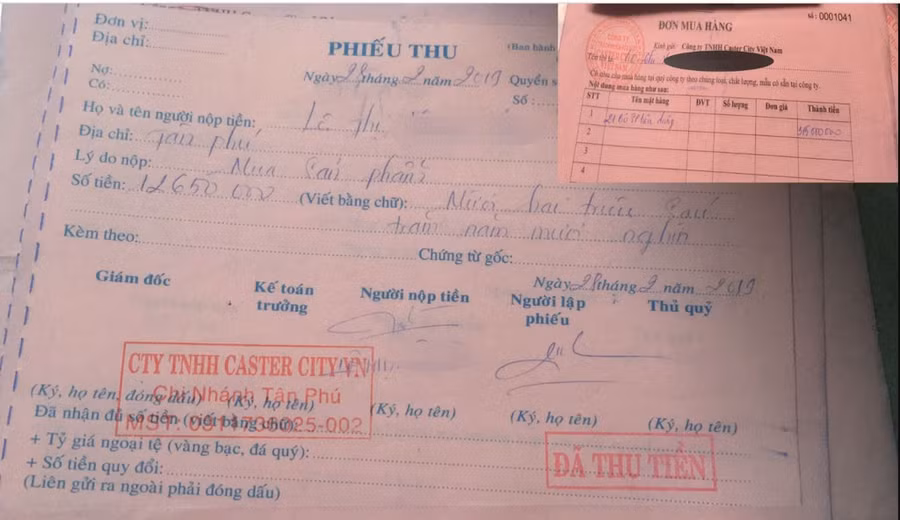 Đơn vị:
Địa chỉ:
PHIẾU THU
(Ban hành
Nợ:
Có:
Ngày 28 tháng 2 năm 2019
Quyển s
Số:
Họ và tên người nộp tiền: Lê Thị
Địa chỉ: Tân phú
Lý do nộp: Mua
Số tiền: 12650 000 (Viết bằng chữ): Mười hai triệu sáu
trăm năm mươi nghìn
Kèm theo: Chứng từ gốc:
Ngày 28 tháng 2 năm 2019
Giám đốc
Kế toán trưởng
Người nộp tiền
Người lập phiếu
Thủ quỹ
CTY TNHH CASTER CITY VN
Chi Nhánh Tân Phú
(Ký, họ tên, đóng dấu) (Ký, họ tên) (Ký, họ tên) (Ký, họ tên) (Ký, họ tên)
Đã nhận đủ số tiền (viết bằng chữ):
+ Tỷ giá ngoại tệ (vàng bạc, đá quý):
+ Số tiền quy đổi:
(Liên gửi ra ngoài phải đóng dấu)
ĐÃ THU TIỀN
Số: 0001041
ĐƠN MUA HÀNG
Kính gửi: Công ty TNHH Caster City Việt Nam
Nội dung mua hàng như sau:
STT Tên mặt hàng ĐVT Số lượng Đơn giá Thành tiền
1
2
3
4